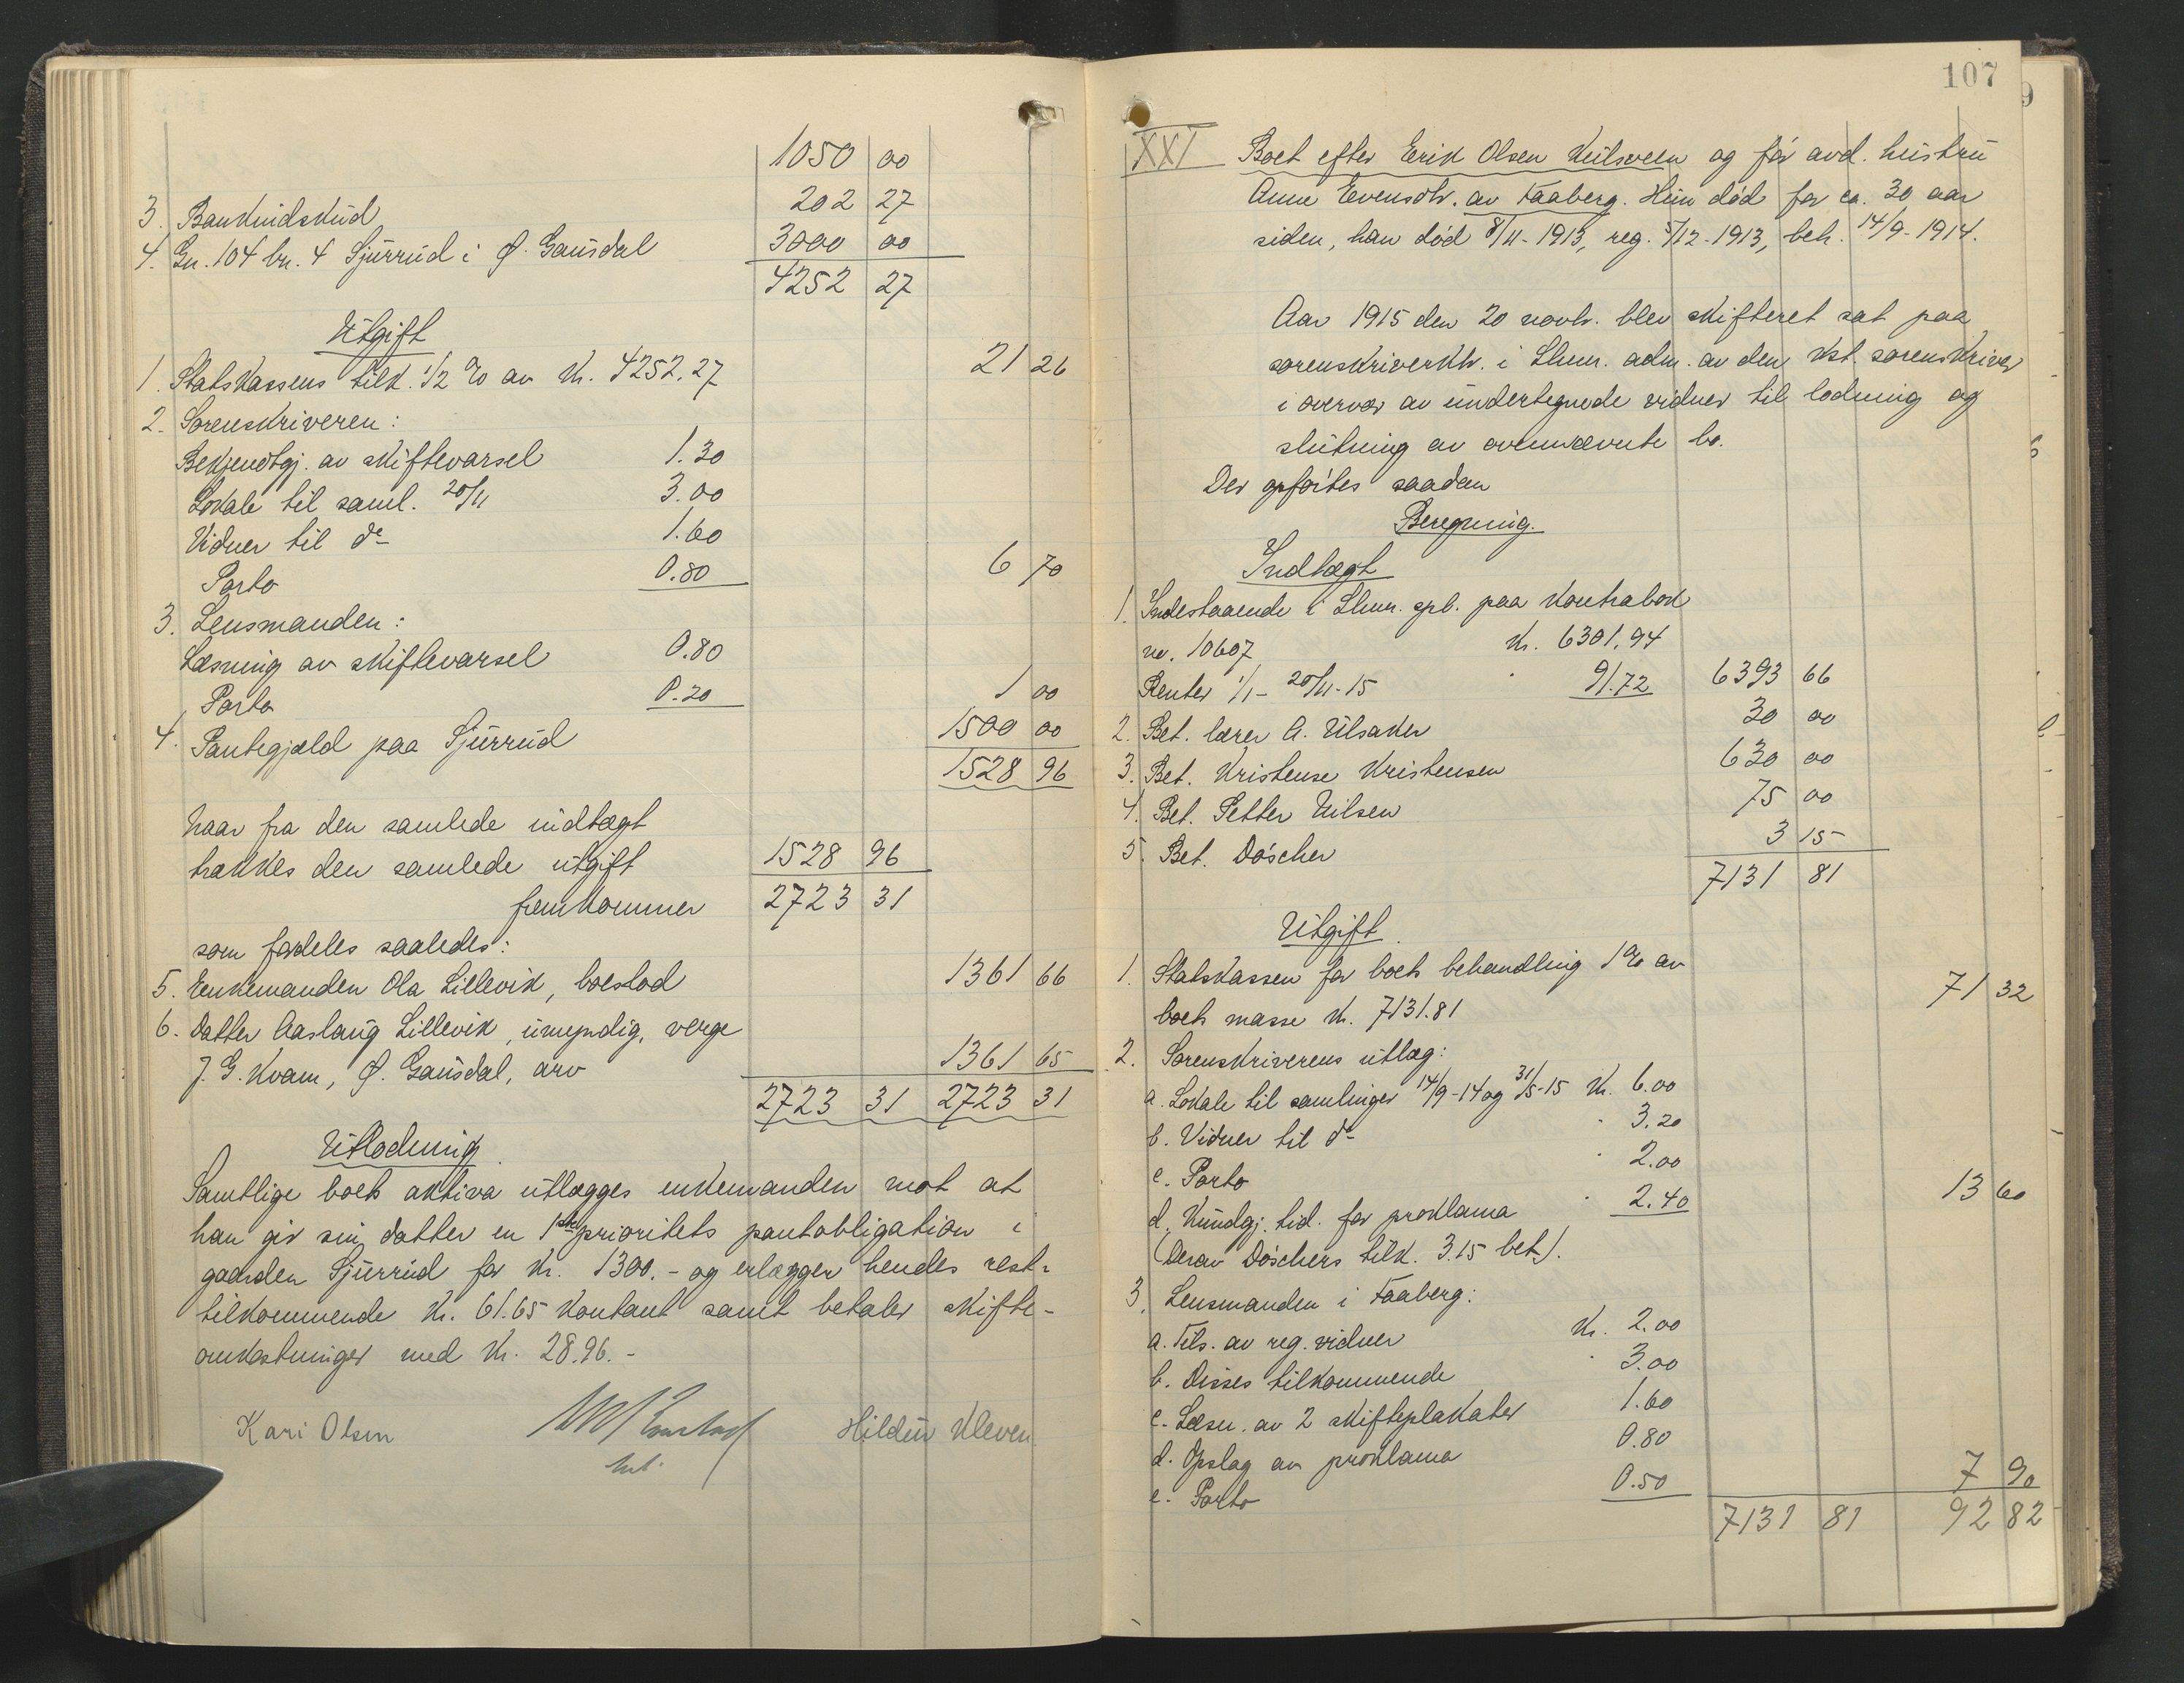 1050 00
3. Bankindskud 202 27
4. Gn. 104 bn. 4 Sjurrud i Ø. Gausdal 3000 00
4252 27
Utgift
1. Statskassens tilk. 1/2 % av kr. 4252.27 21 26
2. Sorenskriveren:
Bekjendtgj. av skiftevarsel 1.30
Lokale til saml. 20/11 3.00
Vidner til do 1.60
Porto 0.80 6 70
3. Lensmanden:
Læsning av skiftevarsel 0.80
Porto 0.20 1 00
4. Pantegjæld paa Sjurrud 1500 00
1528 96
Naar fra den samlede indtægt
trækkes den samlede utgift 1528 96
fremkommer 2723 31
som fordeles saaledes:
5. Enkemanden Ola Lillevik, boeslod 1361 66
6. Datter Aaslaug Lillevik, umyndig, verge
J. G. Kvam, Ø. Gausdal, arv 1361 65
2723 31 2723 31
Utlodning
Samtlige boets aktiva utlægges enkemanden mot at
han gir sin datter en 1ste prioritets pantobligation i
gaarden Sjurrud for kr. 1300.- og erlægger hendes rest-
tilkommende kr. 61.65 kontant samt betaler skifte-
omkostninger med kr. 28.96.-
Kari Olsen Hildur Kleven
107
XXI Boet efter Erik Olsen Nilsveen og før avd. hustru
Anne Evensdtr. av Faaberg. Hun død for ca. 30 aar
siden, han død 8/11-1913, reg. 5/12-1913, beh. 14/9-1914.
Aar 1915 den 20 novbr. blev skifteret sat paa
sorenskriverktr. i Lhmr. adm. av den kst. sorenskriver
i overvær av undertegnede vidner til lodning og
slutning av ovennævnte bo.
Der opførtes saadan
Beregning.
Indtægt
1. Indestaaende i Lhmr. spb. paa kontrabok
no. 10607 kr. 6301.94
Renter 1/1 - 20/11-15 91.72 6393 66
2. Bet. lærer A. Ulsaker 30 00
3. Bet. Kristense Kristensen 630 00
4. Bet. Petter Nilsen 75 00
5. Bet. Döscher 3 15
7131 81
Utgift.
1. Statskassen for boets behandling 1% av
boets masse kr. 7131.81 71 32
2. Sorenskriverens utlæg:
a. Lokale til samlinger 14/9-14 og 31/5-15 kr. 6.00
b. Vidner til do " 3.20
c. Porto " 2.00
d. Kundgj. tid. for proklama " 2.40 13 60
(Derav Döschers tilk. 3.15 bet.).
3. Lensmanden i Faaberg:
a. Tils. av reg. vidner kr. 2.00
b. Disses tilkommende " 3.00
c. Læsn. av 2 skifteplakater 1.60
d. Opslag av proklama 0.80
e. Porto 0.50 7 90
7131 81 92 82